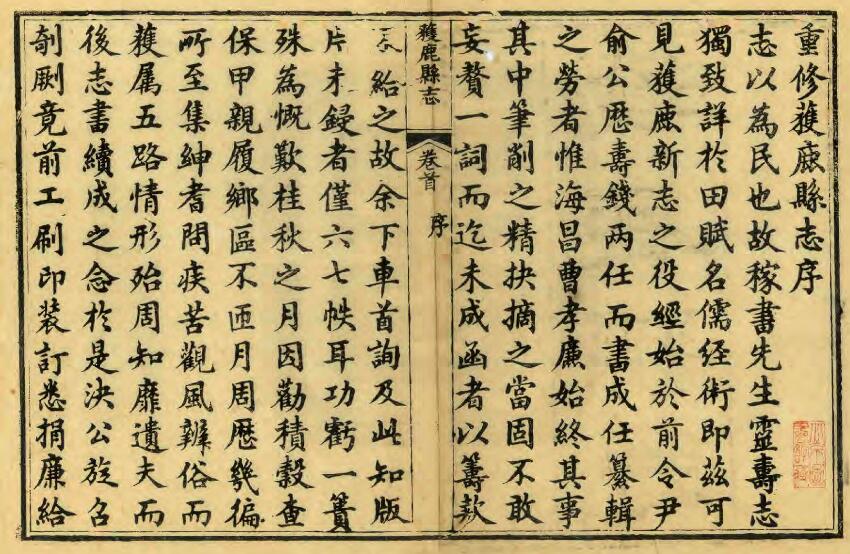 重修獲鹿縣志序
志以為民也故稼書先生靈壽志
獨致詳於田賦名儒經術即茲可
見獲鹿新志之役經始於前令尹
俞公歷壽錢两任而書成任纂輯
之勞者惟海昌曹孝廉始終其事
其中筆削之精抉摘之當固不敢
妄贅一詞而迄未成函者以籌款
給之故余下車首詢及此知版
片未鋟者僅六七帙耳功虧一簣
殊為慨歎桂秋之月因勸積穀查
保甲親履鄉區不匝月周歷幾徧
所至集紳耆問疾苦觀風辨俗而
獲属五路情形殆周知靡遺夫而
後志書續成之念於是決公旋召
剞劂竟前工刷印裝訂悉捐廉給
獲鹿縣志
卷首
序